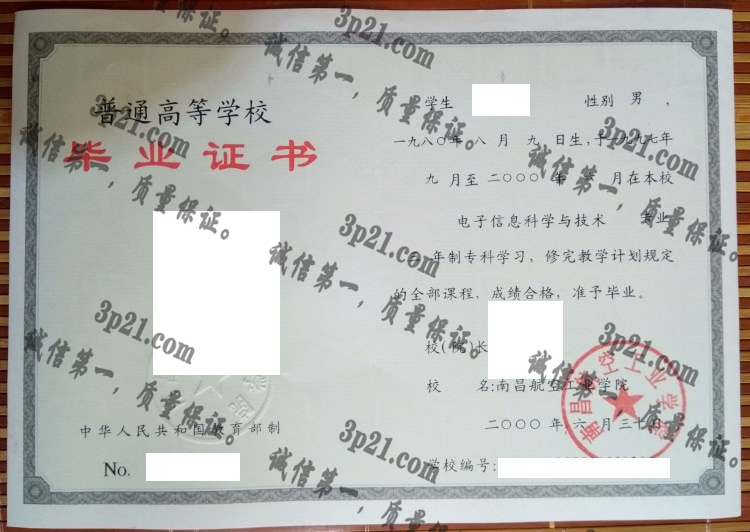 普通高等学校
毕业证书
中华人民共和国教育部制
No.
学生 性别 男 ,
一九八〇年 八 月 九 日生,于一九九七年
九 月至 二〇〇〇 年 六 月在本校
电子信息科学与技术 专业
三 年制专科学习,修完教学计划规定
的全部课程,成绩合格,准予毕业。
校(院)长
校 名:南昌航空工业学院
二〇〇〇 年 六 月 三十 日
学校编号:
3p21.com
诚信第一,质量保证。
3p21.com
诚信第一,质量保证。
3p21.com
诚信第一,质量保证。
3p21.com
诚信第一,质量保证。
3p21.com
诚信第一,质量保证。
3p21.com
诚信第一,质量保证。
3p21.com
诚信第一,质量保证。